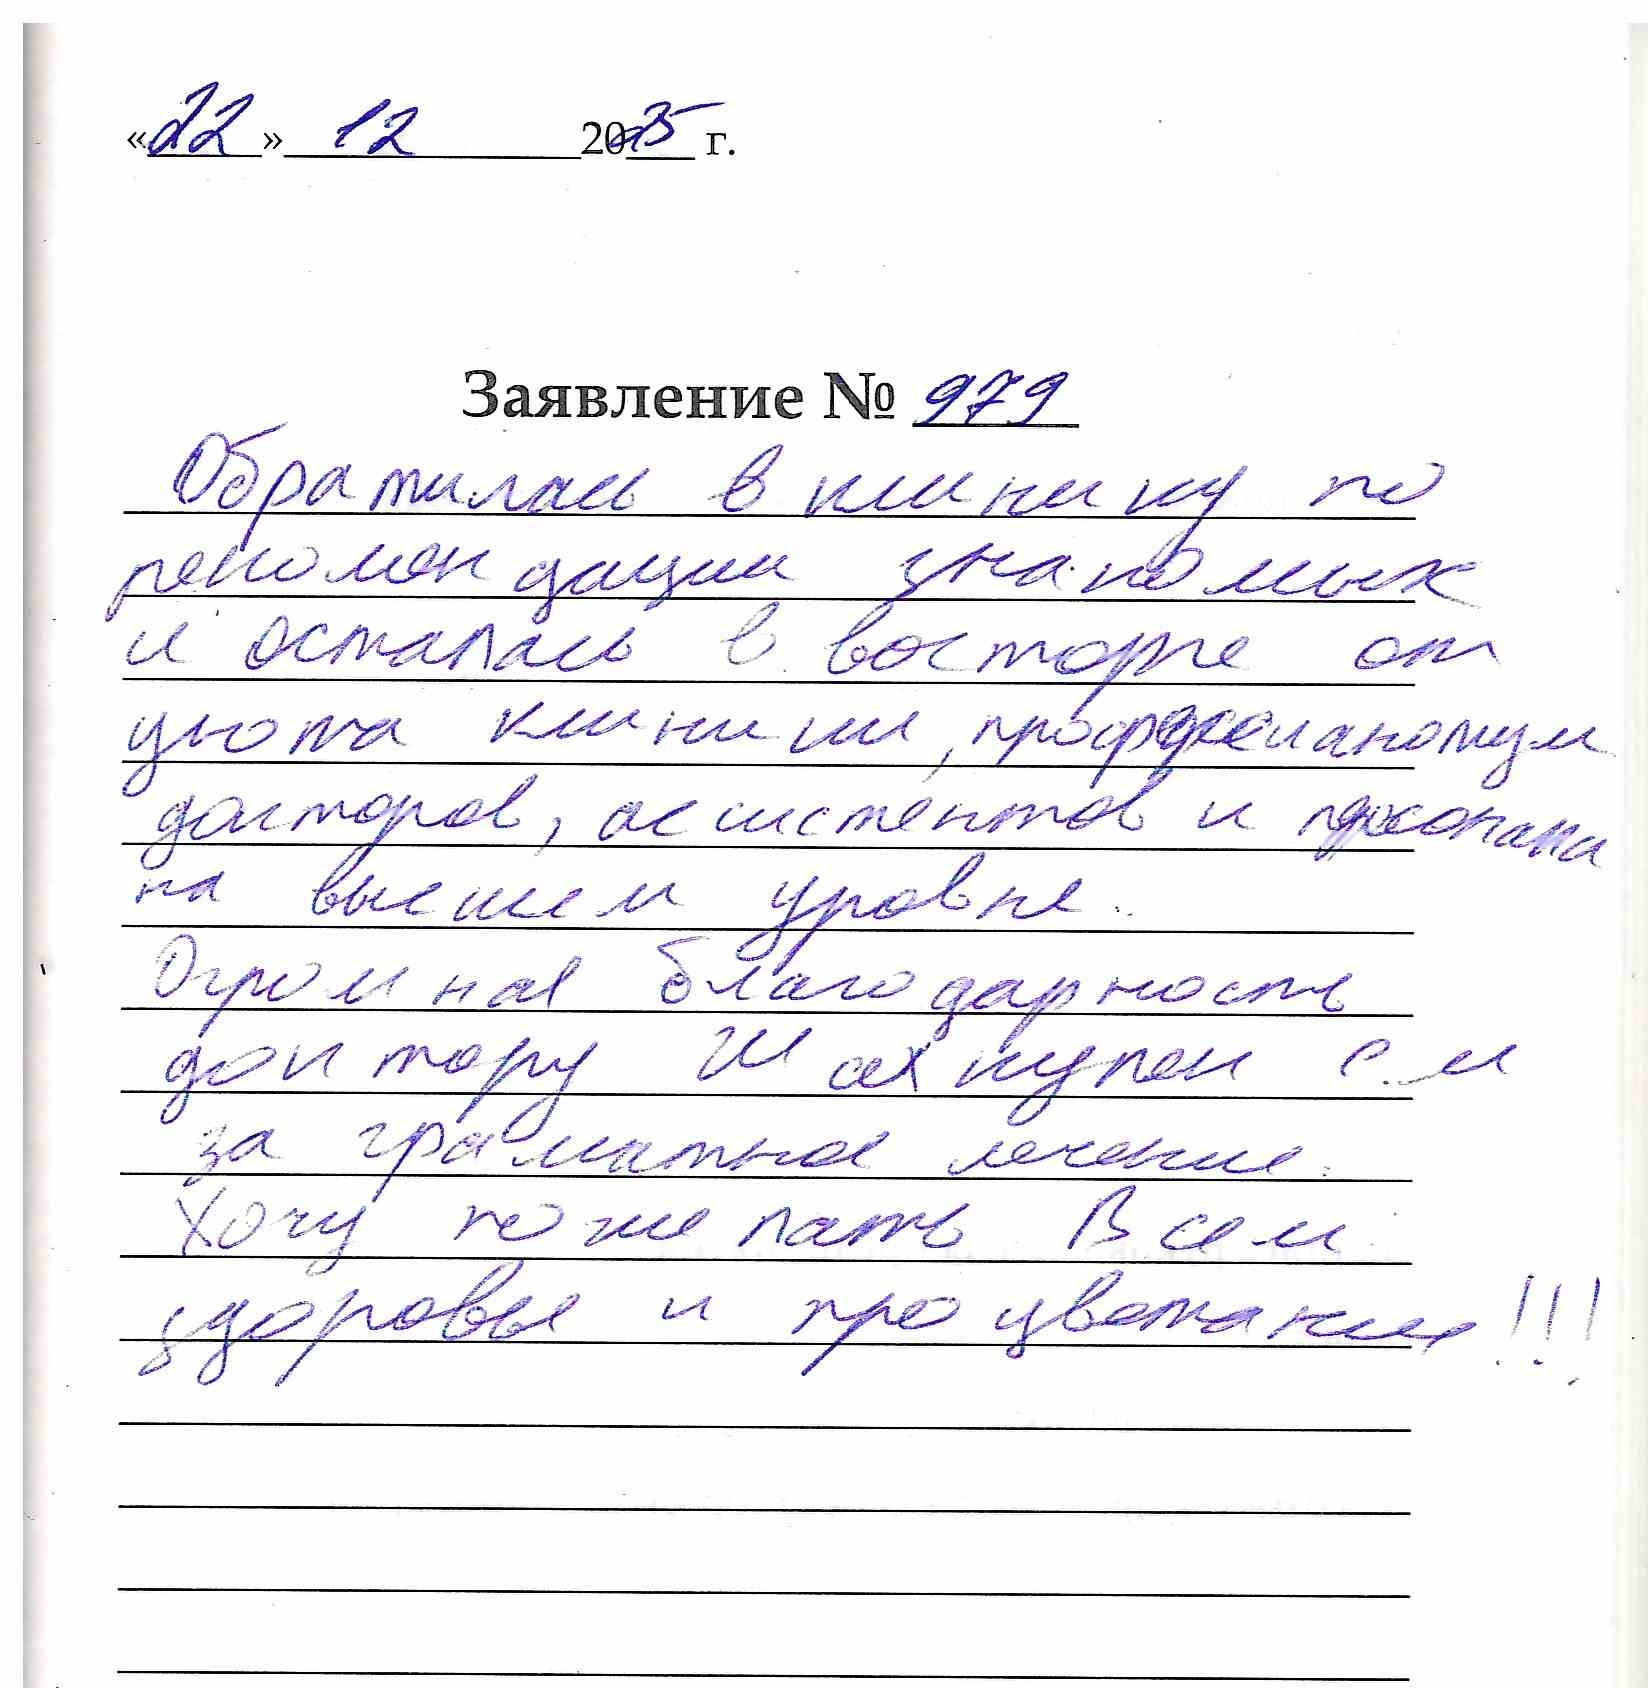 «22» 12 2025 г.
Заявление № 979
Обратилась в клинику по
рекомендации знакомых
и осталась в восторге от
уюта клиники,
докторов, ассистентов и персонала
на высшем уровне.
Огромная благодарность
доктору С.М
за грамотное лечение.
Хочу пожелать Всем
здоровье и процветание!!!